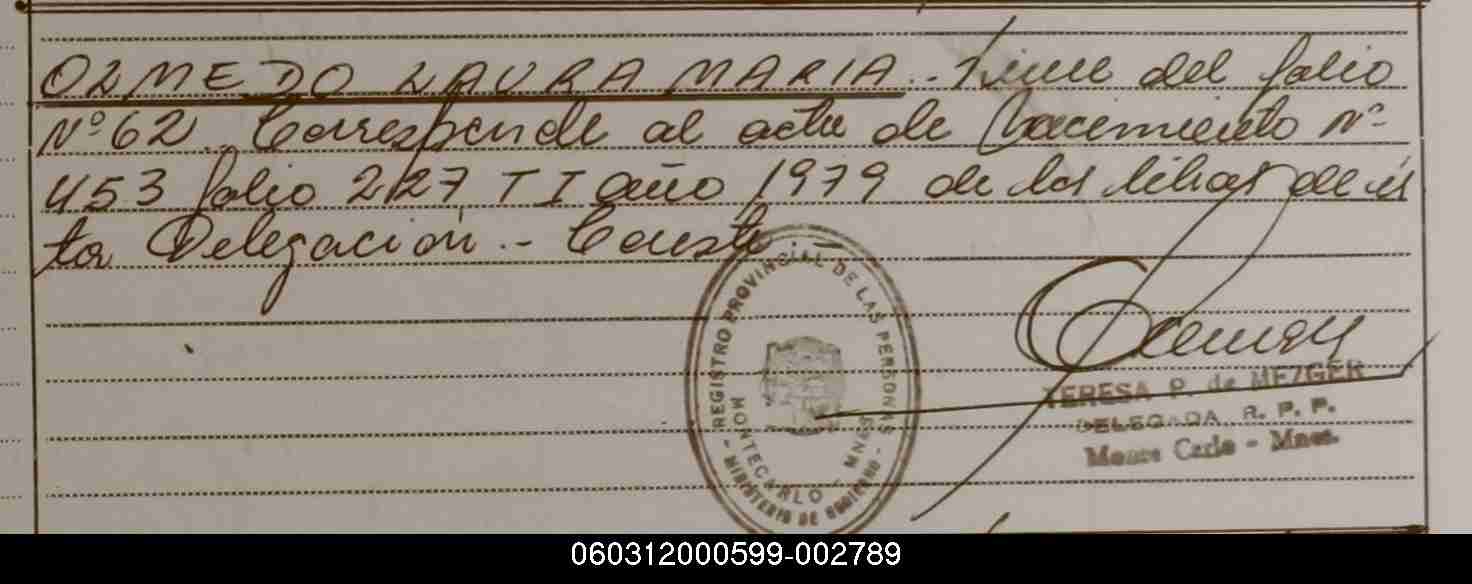 OLMEDO LAURA MARIA.- Viene del folio
Nº 62. Corresponde al acta de Nacimiento Nº
453 folio 227, T I año 1979 de los libros de és
ta Delegación.- Conste.-
REGISTRO PROVINCIAL DE LAS PERSONAS
MONTECARLO - MNES
- MINISTERIO DE GOBIERNO -
TERESA P. de MEZGER
DELEGADA R. P. P.
Monte Carlo - Mnes.
060312000599-002789